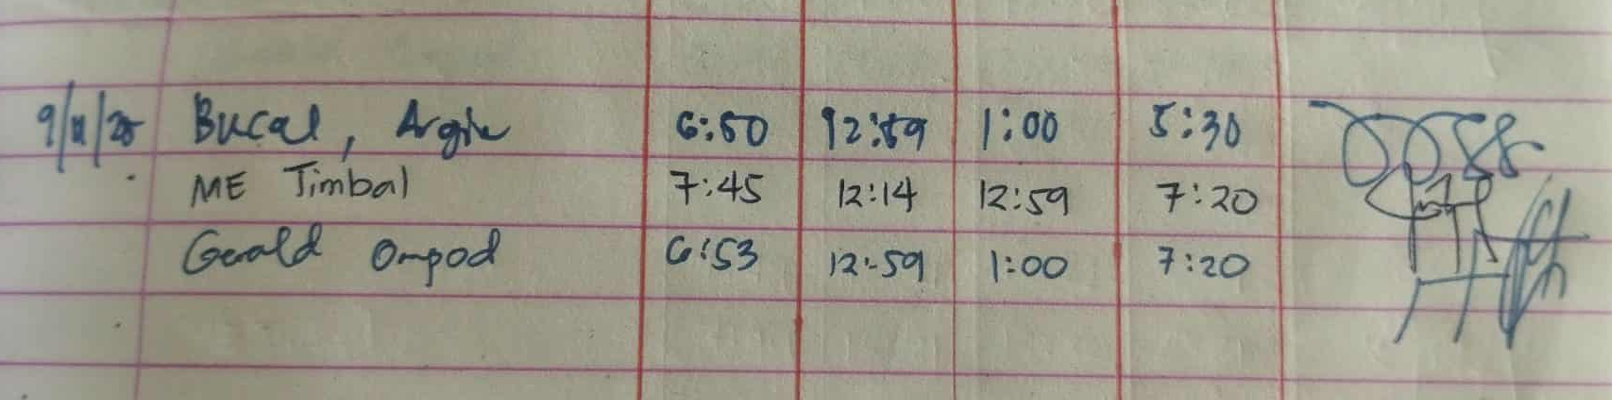 Bucal, Argie 6:50 12:59 1:00 5:30
ME Timbal 7:45 12:14 12:59 7:20
Gerald Ompod 6:53 12:59 1:00 7:20